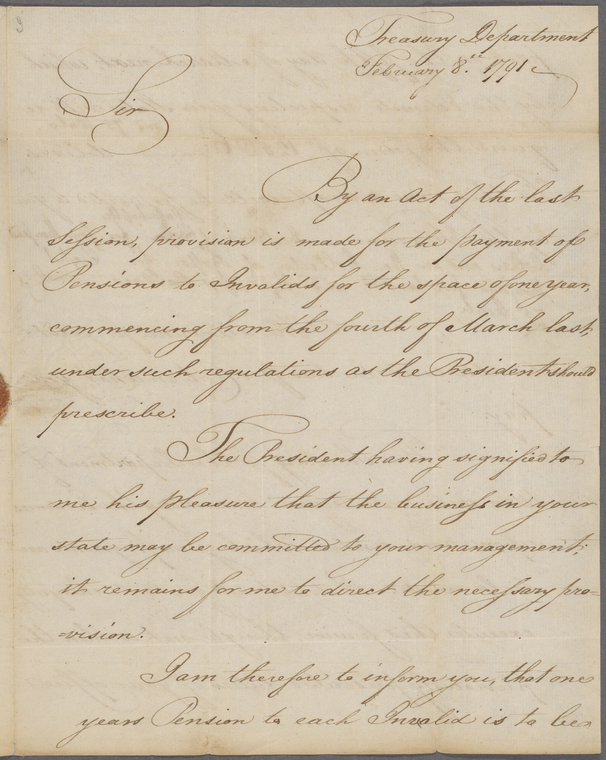 3
Treasury Department
February 8.th 1791
Sir
By an Act of the last
Session, provision is made for the payment of
Pensions to Invalids for the space of one year,
commencing from the fourth of March last,
under such regulations as the President should
prescribe.
The President having signified to
me his pleasure that the business in your
state may be committed to your management;
it remains for me to direct the necessary pro=
=vision.
I am therefore to inform you, that one
years Pension to each Invalid is to be